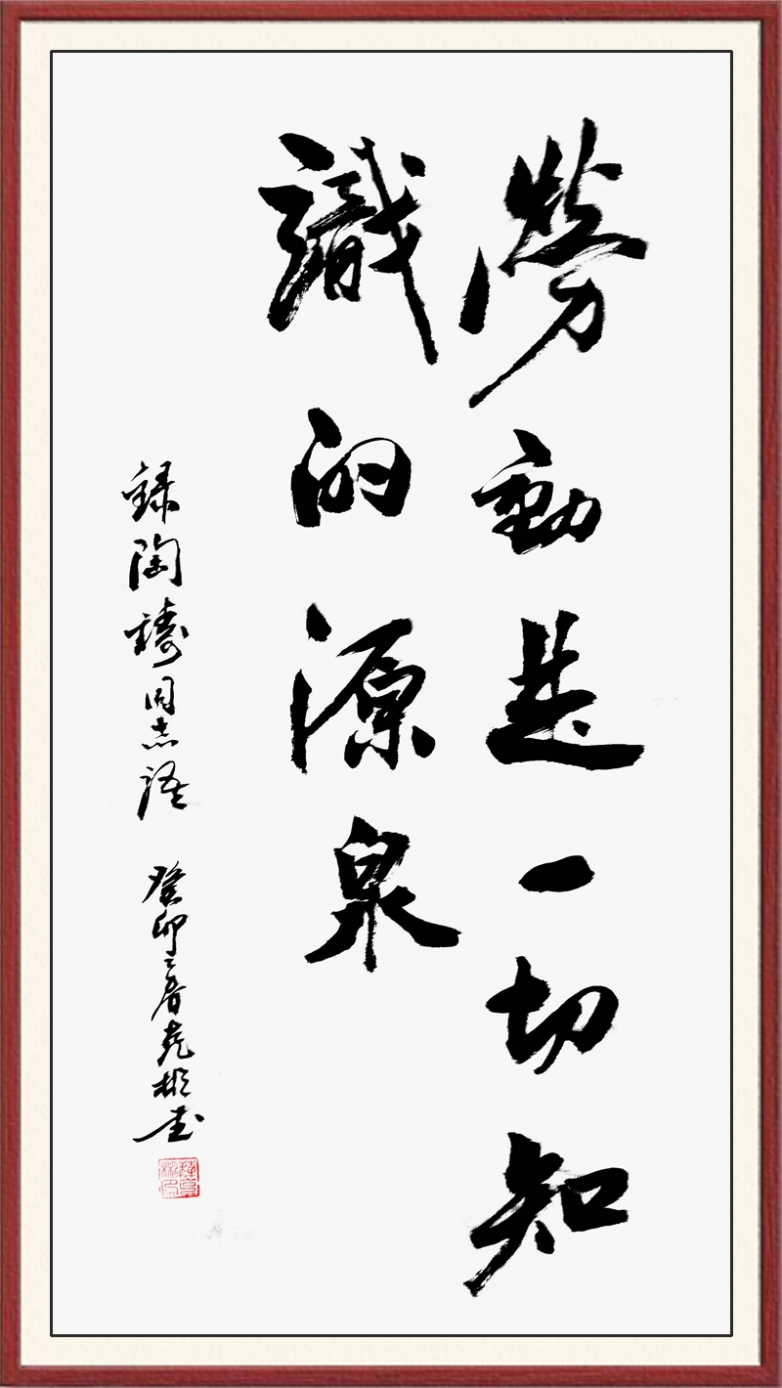 勞動是一切知
識的源泉
録陶鑄同志語 癸卯之春尭彬书